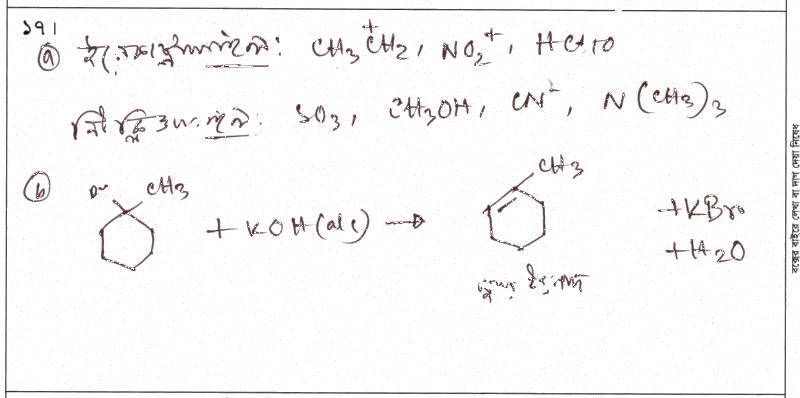 ১৭।
ⓐ ইলেকট্রোফাইল: CH3C⁺H2, NO2⁺, HCHO
নিউক্লিওফাইল: SO3, CH3OH, CN⁻, N(CH3)3
ⓑ Br CH3 + KOH(alc) → CH3 + KBr
+ H2O
বক্সের বাইরে লেখা বা দাগ দেয়া নিষেধ